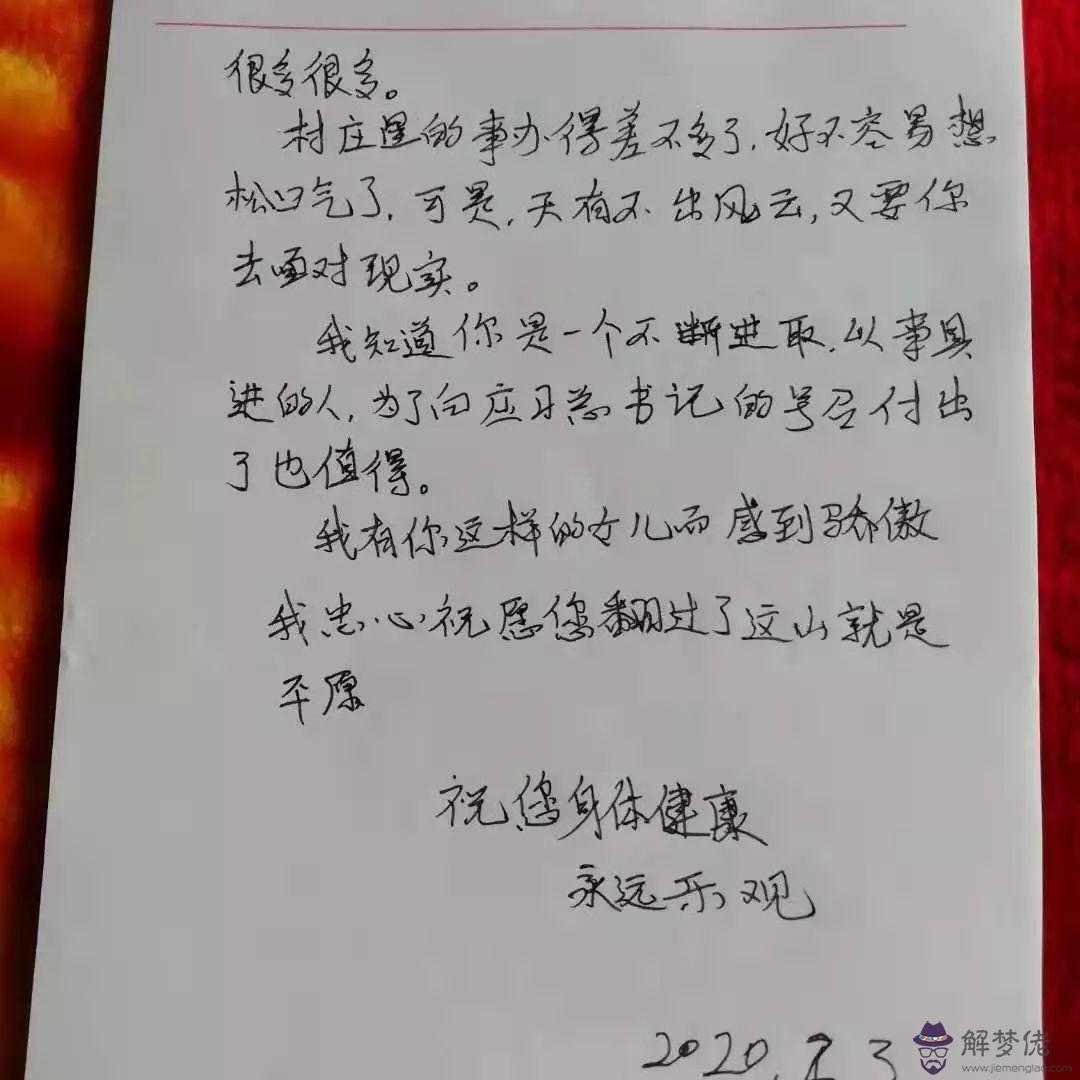 很多很多。
村庄里的事办得差不多了,好不容易想
松口气了,可是,天有不出风云,又要你
去面对现实。
我知道你是一个不断进取,以事具
进的人,为了向应习总书记的号召付出
了也值得。
我有你这样的女儿而感到骄傲
我忠心祝愿您翻过了这山就是
平愿
祝您身体健康
永远乐观
2020.2 3
解梦佬
www.jiemenglao.com